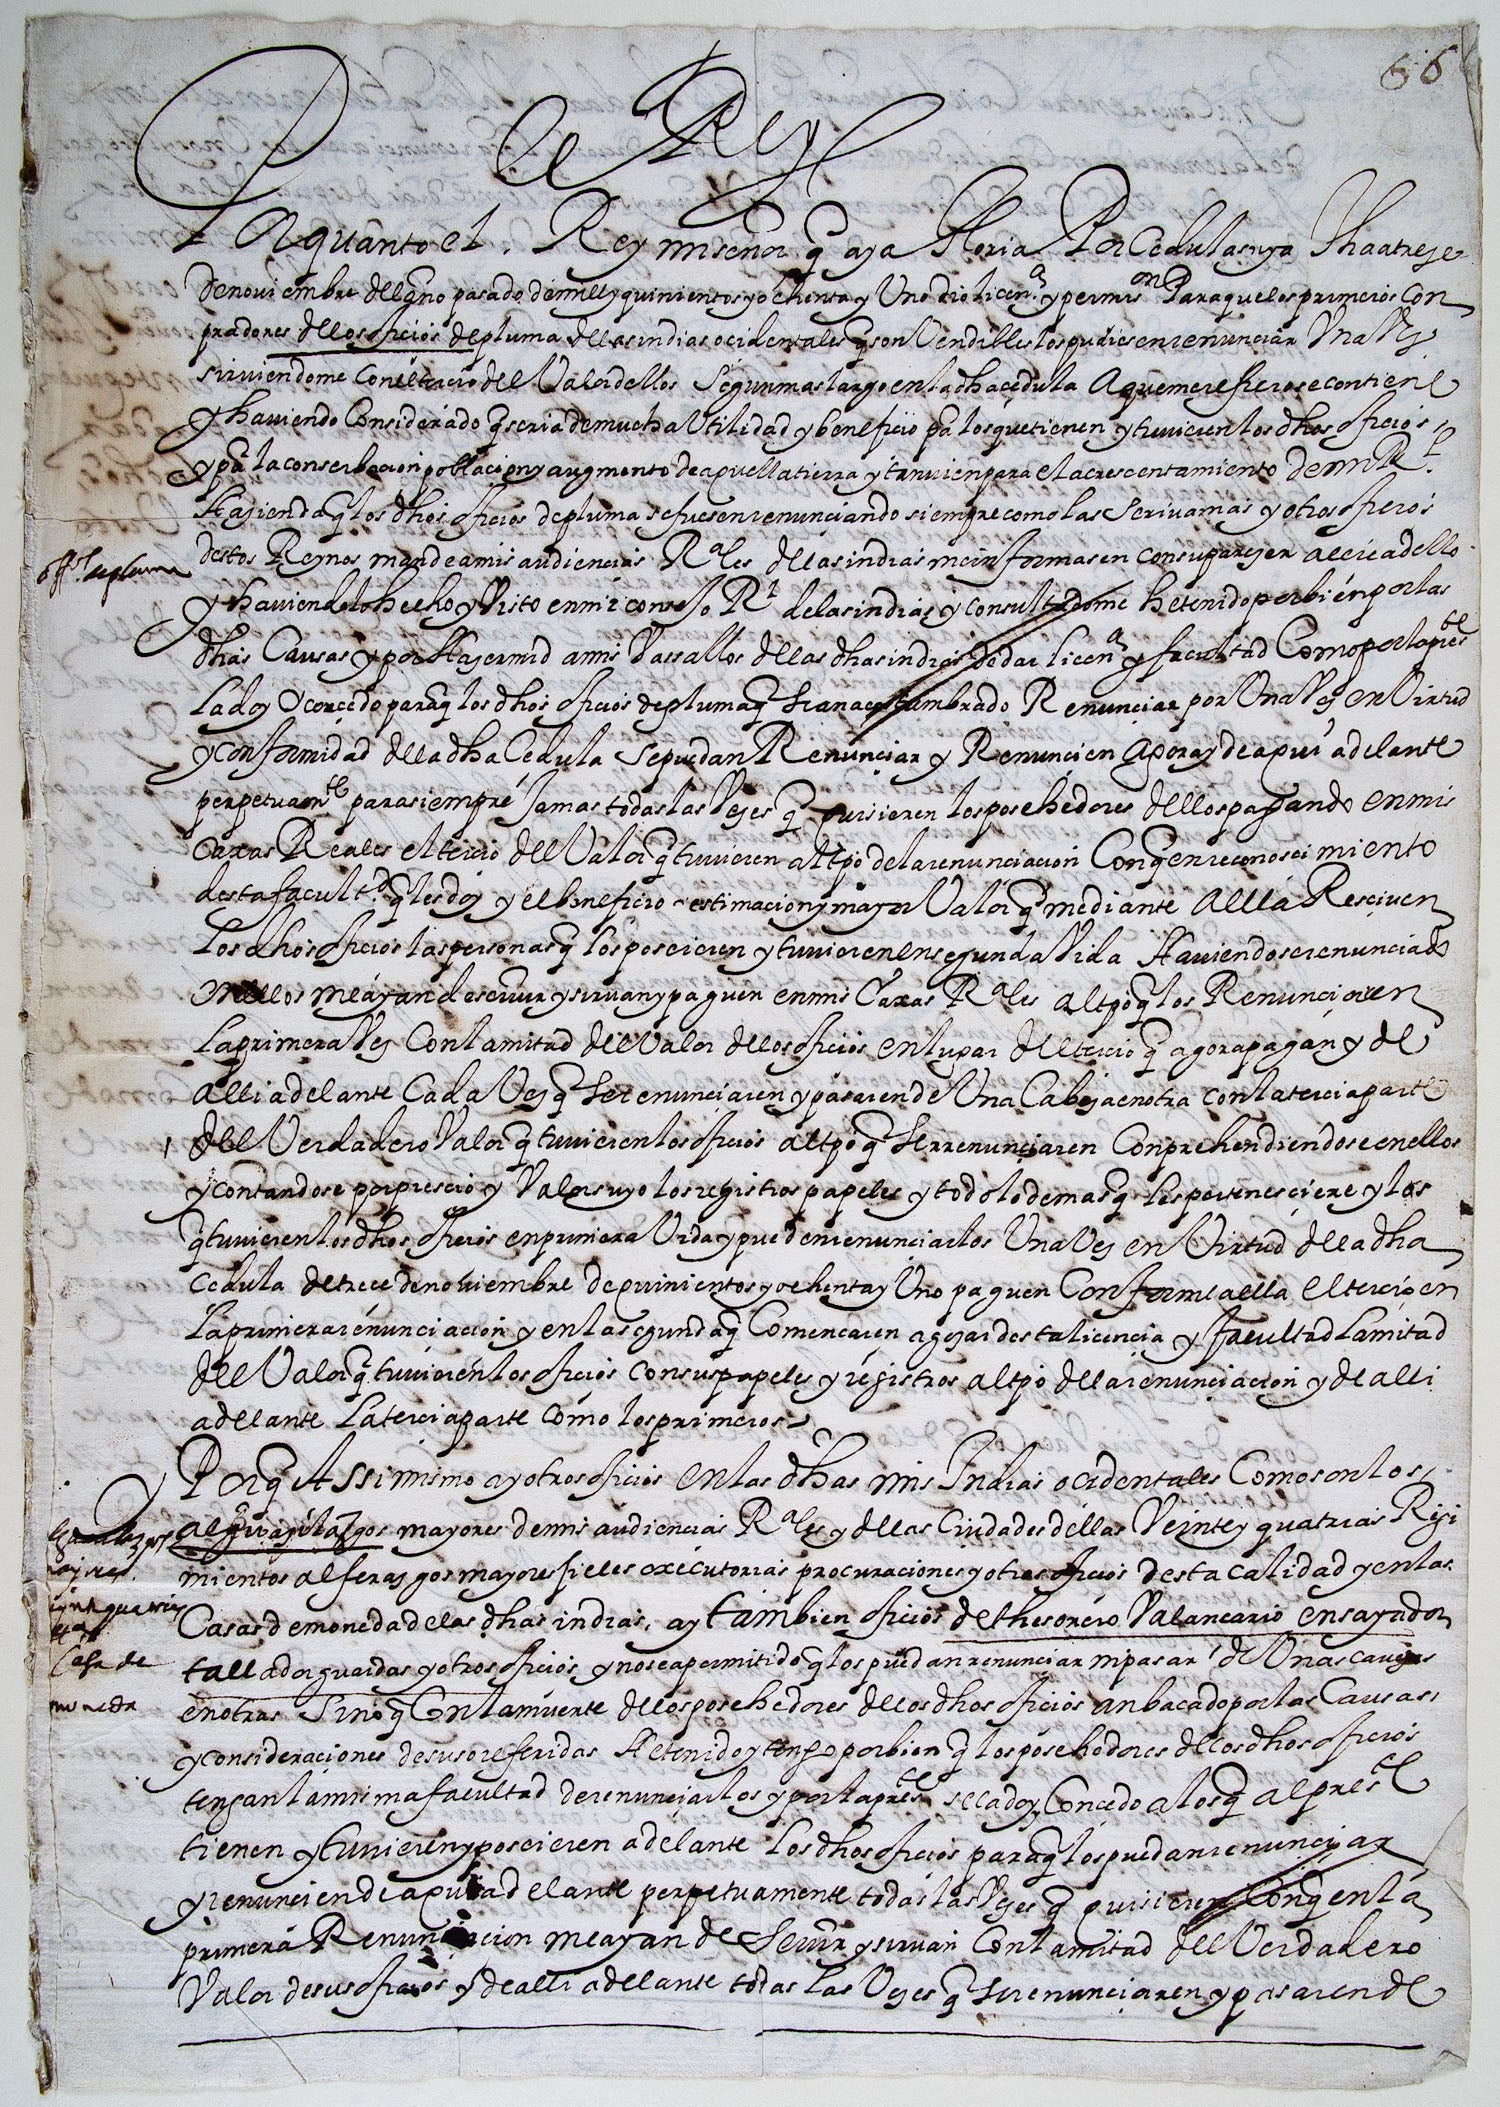 66
El Rey
Por quanto el Rey mi señor q aya gloria Por Cedula suya fha a treze
de noviembre del año pasado de mill y quinientos y ochenta y Uno dio licen.a y permis.on Para que los primeros con
pradores de los oficios de pluma de las indias ocidentales q son Vendibles los pudiesen renunciar Una Vez
sirviendome con el tercio del Valor dellos Segun mas largo en la dha cedula A que me refiero se contiene
y haviendo Considerado q seria de mucha Utilidad y beneficio pa los que tienen y tuvieren los dhos oficios
y pa la conserbacion poblacion y augmento de aquella tierra y tanvien para el acrescentamiento de mi Rl
Hazienda q los dhos oficios de pluma se fuesen renunciando siempre como las Scrivanias y otros oficios
destos Reynos mande a mis audiencias Rales de las indias me informasen con su parezer acerca dello
offos de pluma
y haviendolo hecho y Visto en mi consejo Rl de las indias y consultadome he tenido por bien por las
dhas Causas y por Hazer mrd a mis Vassallos de las dhas indias de dar licen.a y facultad Como por la pres.te
la doy y concedo para q los dhos oficios de pluma q se an acostumbrado Renunciar por Una Vez en Virtud
y conformidad de la dha Cedula se puedan Renunciar y Renuncien agora y de aqui adelante
perpetuamte para siempre Jamas todas las Vezes q quisieren los posehedores dellos pagando en mis
Caxas Reales el tercio del Valor q tuvieren al tpo de la renunciacion Con q en reconoscimiento
desta facult.d q les doy y el beneficio estimacion y mayor Valor q mediante Alla Resciven
los dhos oficios las personas q los poseieren y tuvieren en segunda Vida Haviendose renunciado
en ellos me ayan de servir y sirvan y paguen en mis Caxas Rales al tpo q los Renunciaren
la primera Vez Con la mitad del Valor de los oficios en lugar del tercio q agora pagan y de
alli adelante Cada Vez q se renunciaren y pasaren de Una Cabeza en otra con la tercia parte
del Verdadero Valor q tuvieren los oficios al tpo q se rrenunciaren Conprehendiendose en ellos
y contandose por prescio y Valor suyo los registros papeles y todo lo demas q les pertenesciere y los
q tuvieren los dhos oficios en primera Vida y pueden renunciarlos Una Vez en Virtud de la dha
cedula de trece de noviembre de quinientos y ochenta y Uno paguen Conforme a ella el tercio en
la primera renunciacion y en la segunda q Comencaren a gozar desta licencia y facultad la mitad
del Valor q tuvieren los oficios con sus papeles y registros al tpo de la renunciacion y de alli
adelante la tercia parte como los primeros
y Por q Assimismo ay otros oficios en las dhas mis Indias ocidentales Como son los
alguazilazgos mayores de mis audiencias Rales y de las Ciudades dellas Veinte y quatrias Regi
mientos alferazgos mayores fieles executorias procuraciones y otros oficios desta calidad y en las
Casas de moneda de las dhas indias, ay tambien oficios de thesorero Valancario ensayador
Casa de
moneda
tallador guardas y otros oficios y no se a permitido q los puedan renunciar ni pasar de Unas cavezas
en otras Sino q Con la muerte de los posehedores de los dhos oficios an bacado por las Causas
y consideraciones de suso referidas He tenido y tengo por bien q los posehedores de los dhos oficios
tengan la misma facultad de renunciarlos y por la pres.te se la doy y Concedo a los q al pres.te
tienen y tuvieren y poseieren adelante los dhos oficios para q los puedan renunciar
y renuncien de aqui adelante perpetuamente todas las Vezes q quisieren Con q en la
primera Renunciacion me ayan de Servir y sirvan Con la mitad del Verdadero
Valor de sus oficios y de alli adelante todas las Vezes q se renunciaren y pasaren de